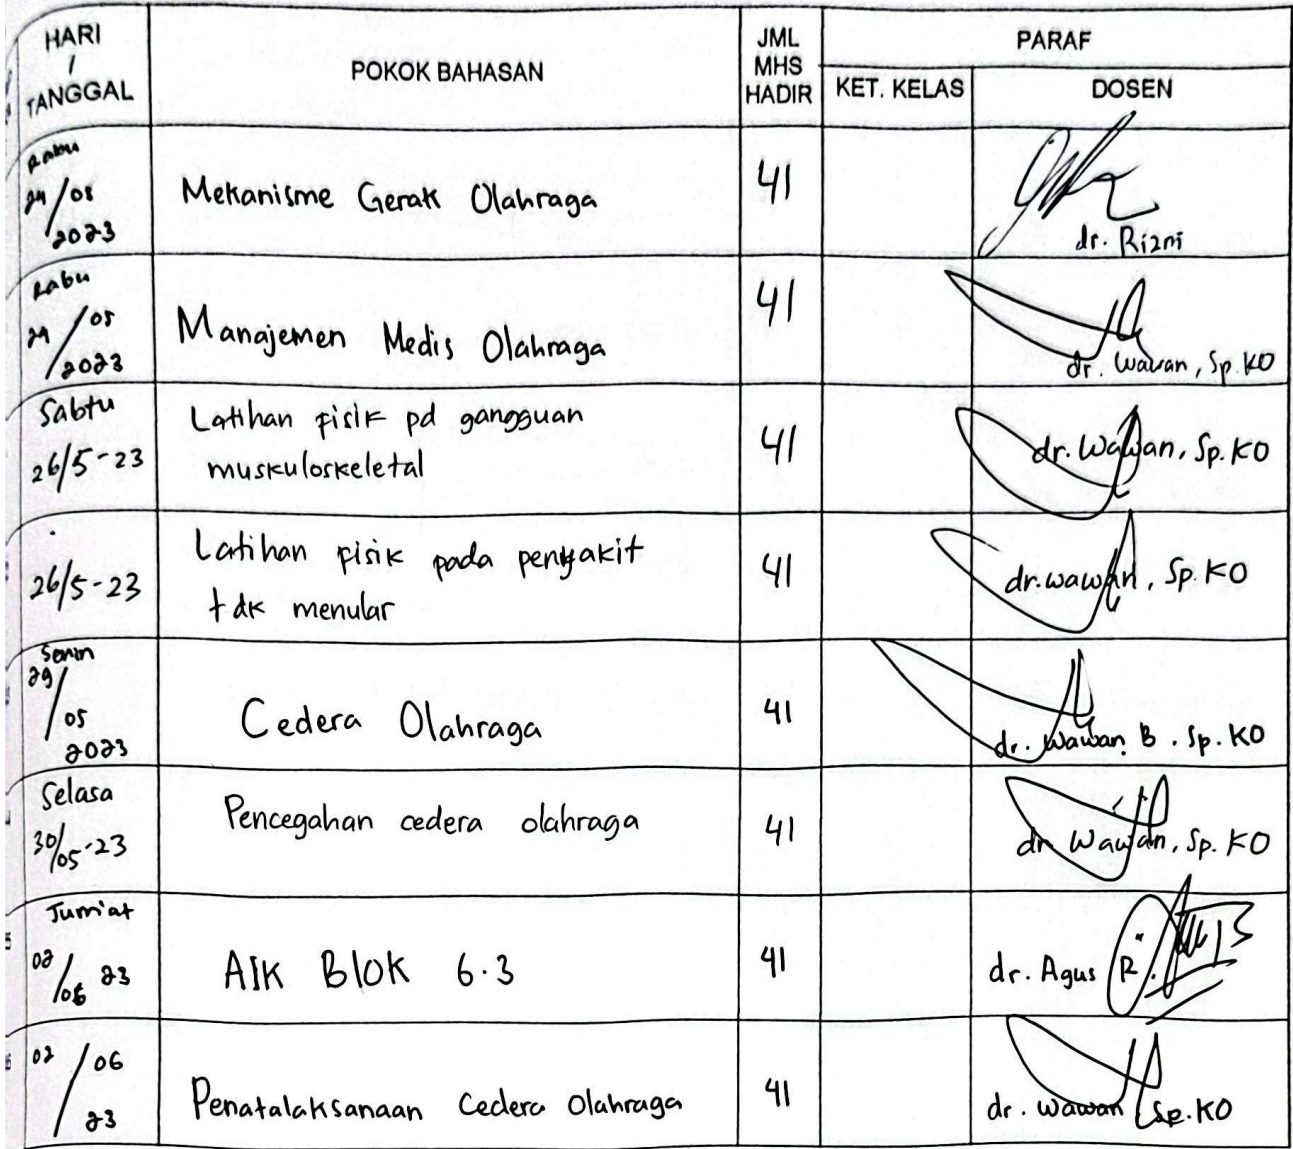 HARI
/
TANGGAL
POKOK BAHASAN
JML
MHS
HADIR
PARAF
KET. KELAS
DOSEN
Rabu
24/05
2023
Mekanisme Gerak Olahraga
41
dr. Rizni
Rabu
24/05
2023
Manajemen Medis Olahraga
41
dr. Wawan, Sp.KO
Sabtu
26/5-23
Latihan fisik pd gangguan
muskuloskeletal
41
dr. Wawan, Sp.KO
26/5-23
Latihan fisik pada penyakit
tdk menular
41
dr. wawan, Sp.KO
Senin
29/
05
2023
Cedera Olahraga
41
dr. Wawan B. Sp.KO
Selasa
30/05-23
Pencegahan cedera olahraga
41
dr Wawan, Sp.KO
Jum'at
02/06 23
AIK BLOK 6.3
41
dr. Agus R.
02/06
23
Penatalaksanaan Cedera Olahraga
41
dr. Wawan Sp.KO